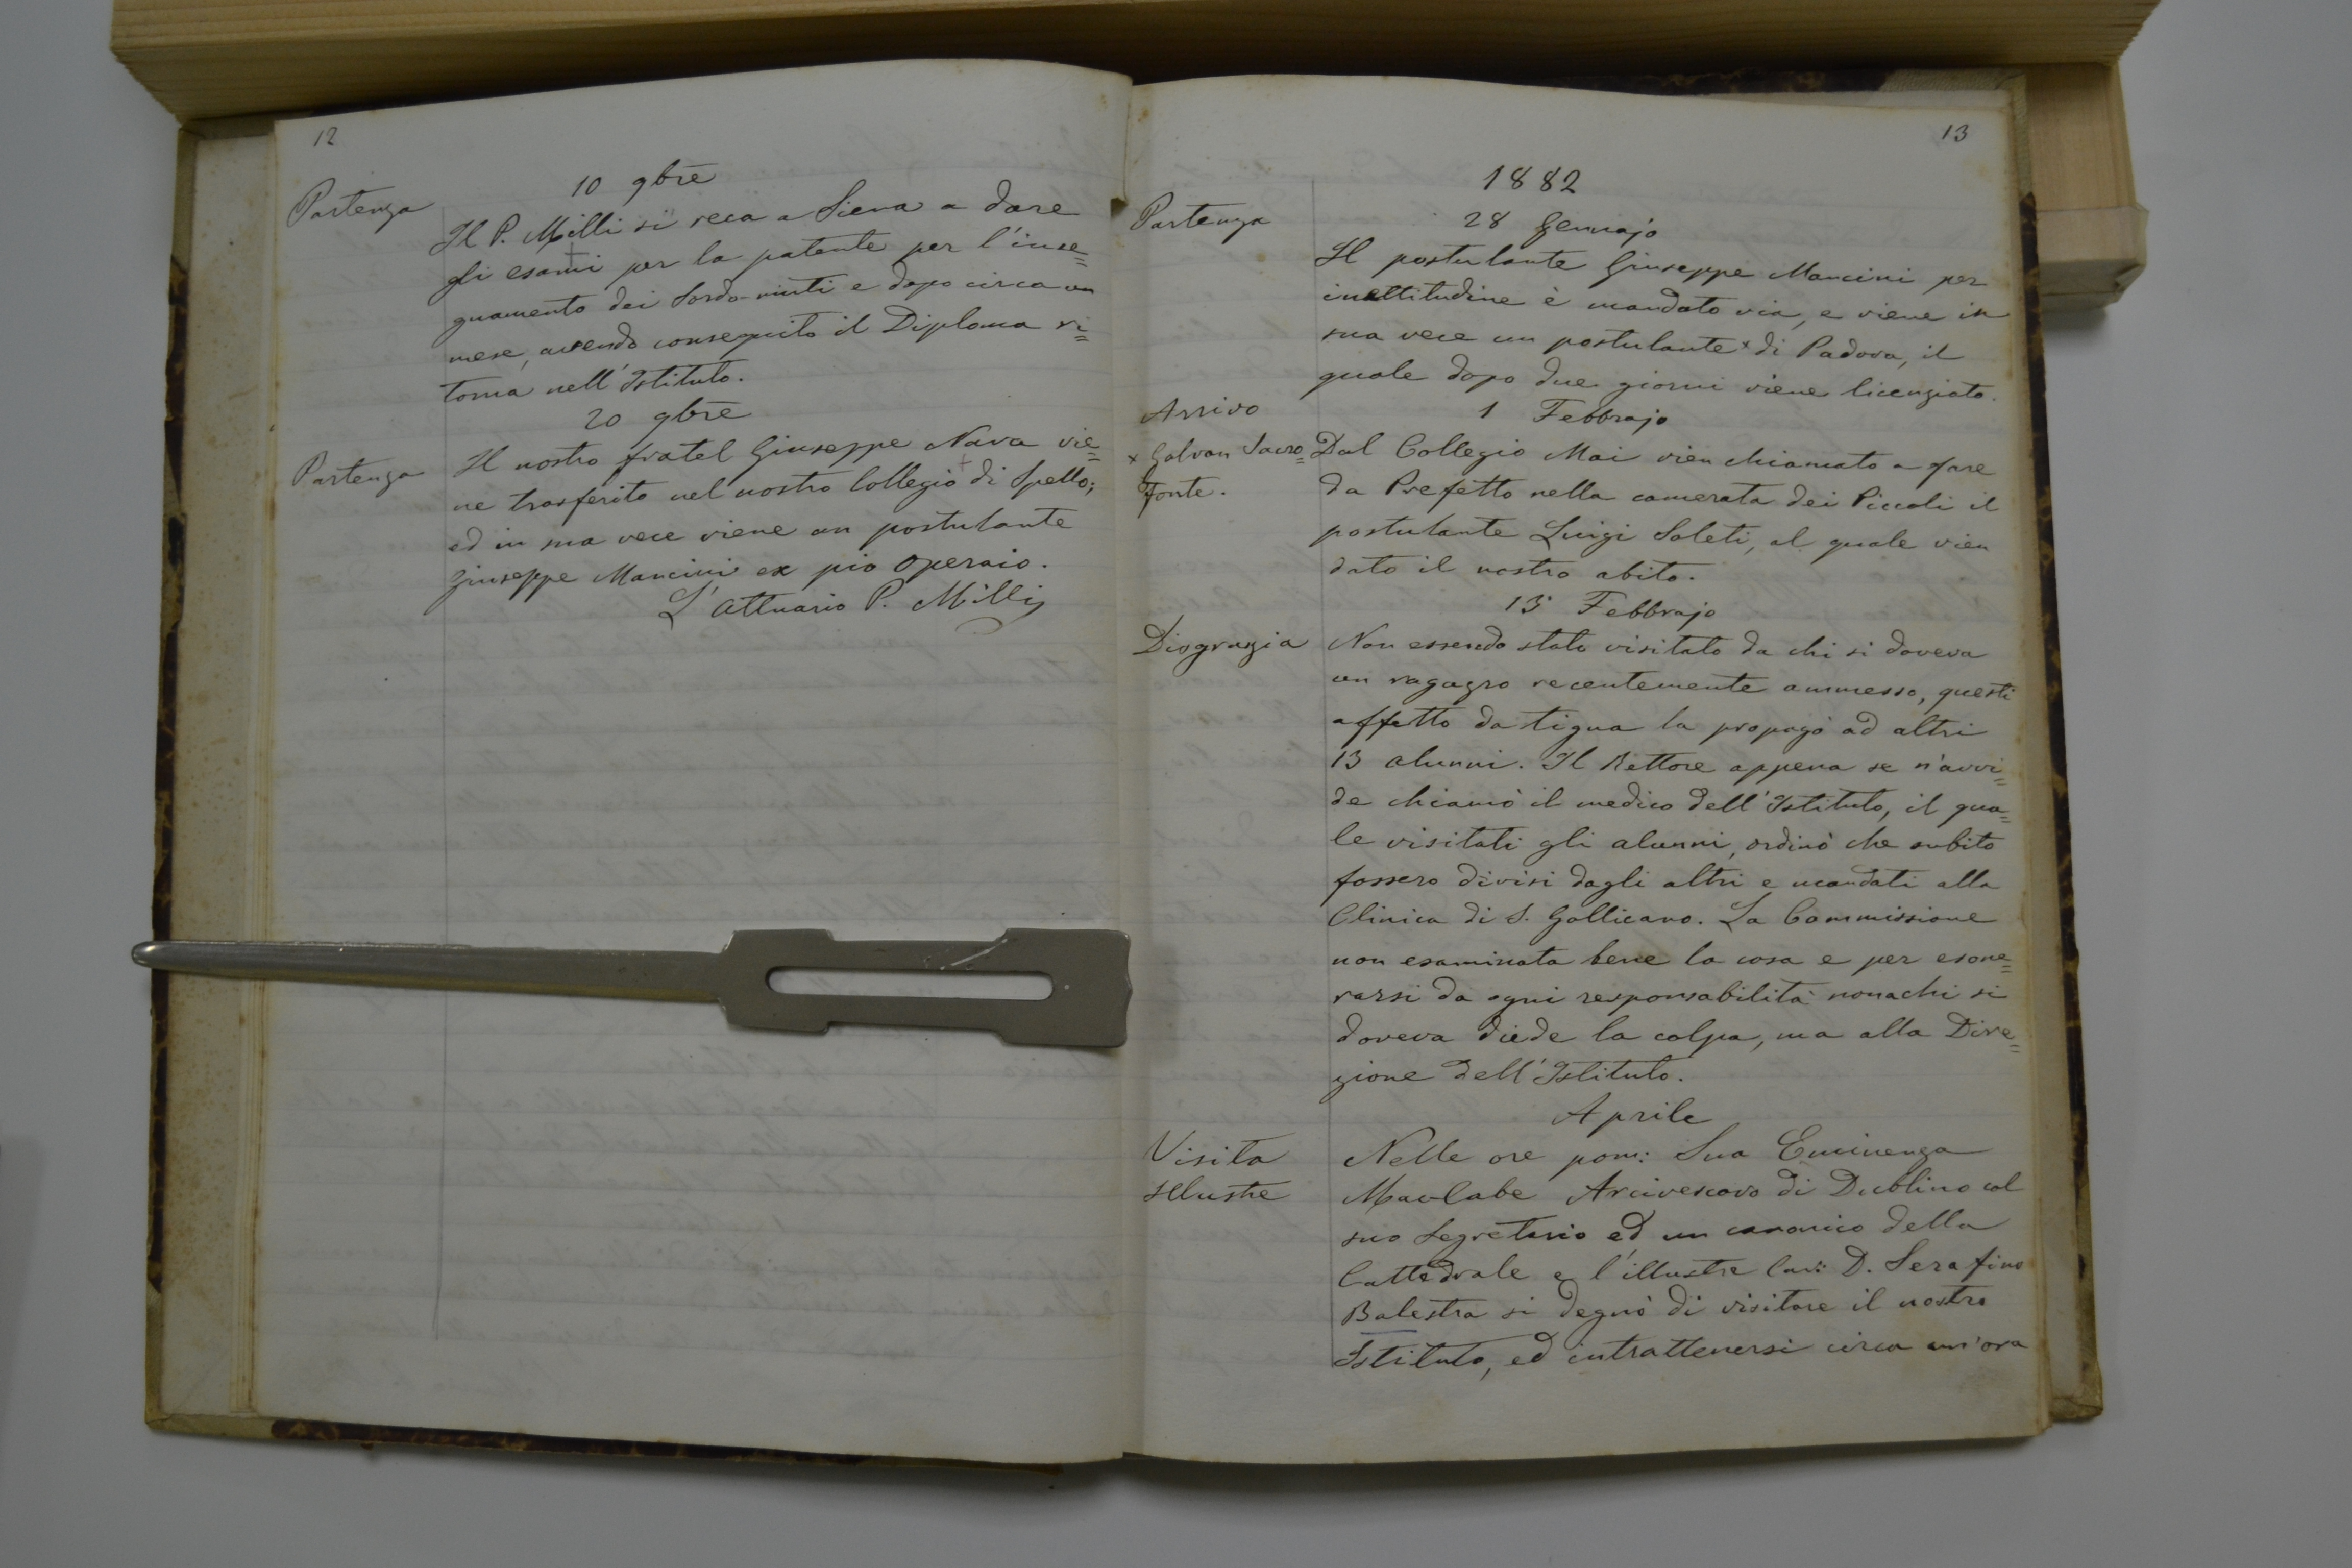 12
10 9bre
Partenza
Il P. Milli si reca a Siena a dare
gli esami per la patente per l'inse=
gnamento dei Sordo-muti e dopo circa un
mese, avendo conseguito il Diploma ri=
torna nell'Istituto.
20 9bre
Partenza
Il nostro fratel Giuseppe Nava vie=
ne trasferito nel nostro Collegio di Spello;
ed in sua vece viene un postulante
Giuseppe Mancini ex pio operaio.
L'Attuario P. Milli
13
1882
28 Gennajo
Partenza
Il postulante Giuseppe Mancini per
inettitudine è mandato via, e viene in
sua vece un postulante x di Padova, il
quale dopo due giorni viene licenziato.
Arrivo
1 Febbrajo
x Galvan Sacro=
fonte.
Dal Collegio Mai vien chiamato a fare
da Prefetto nella camerata dei Piccoli il
postulante Luigi Saleti, al quale vien
dato il nostro abito.
15 Febbrajo
Disgrazia
Non essendo stato visitato da chi si doveva
un ragazzo recentemente ammesso, questi
affetto da tigna la propagò ad altri
13 alunni. Il Rettore appena se n'avvi=
de chiamò il medico dell'Istituto, il qua=
le visitati gli alunni, ordinò che subito
fossero divisi dagli altri e mandati alla
Clinica di S. Gallicano. La Commissione
non esaminata bene la cosa e per esone=
rarsi da ogni responsabilità non a chi si
doveva diede la colpa, ma alla Dire=
zione dell'Istituto.
Aprile
Visita
Illustre
Nelle ore pom: Sua Eminenza
Mac-Cabe Arcivescovo di Dublino col
suo Segretario ed un canonico della
Cattedrale e l'illustre Cav: D. Serafino
Balestra si degnò di visitare il nostro
Istituto, ed intrattenersi circa un'ora